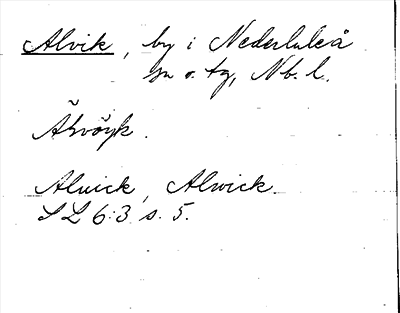 Alvik, by i Nederluleå
sn o. tg, Nb. l.
Alvick, Alwick.
SL 6:3 s. 5.